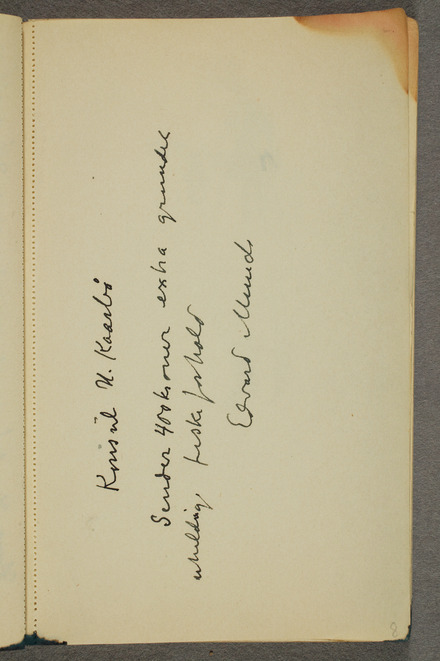 Konsul N. Kaarbö
Sender 400 kroner extra grundet
uheldig, tyske forhold
Edvard Munch